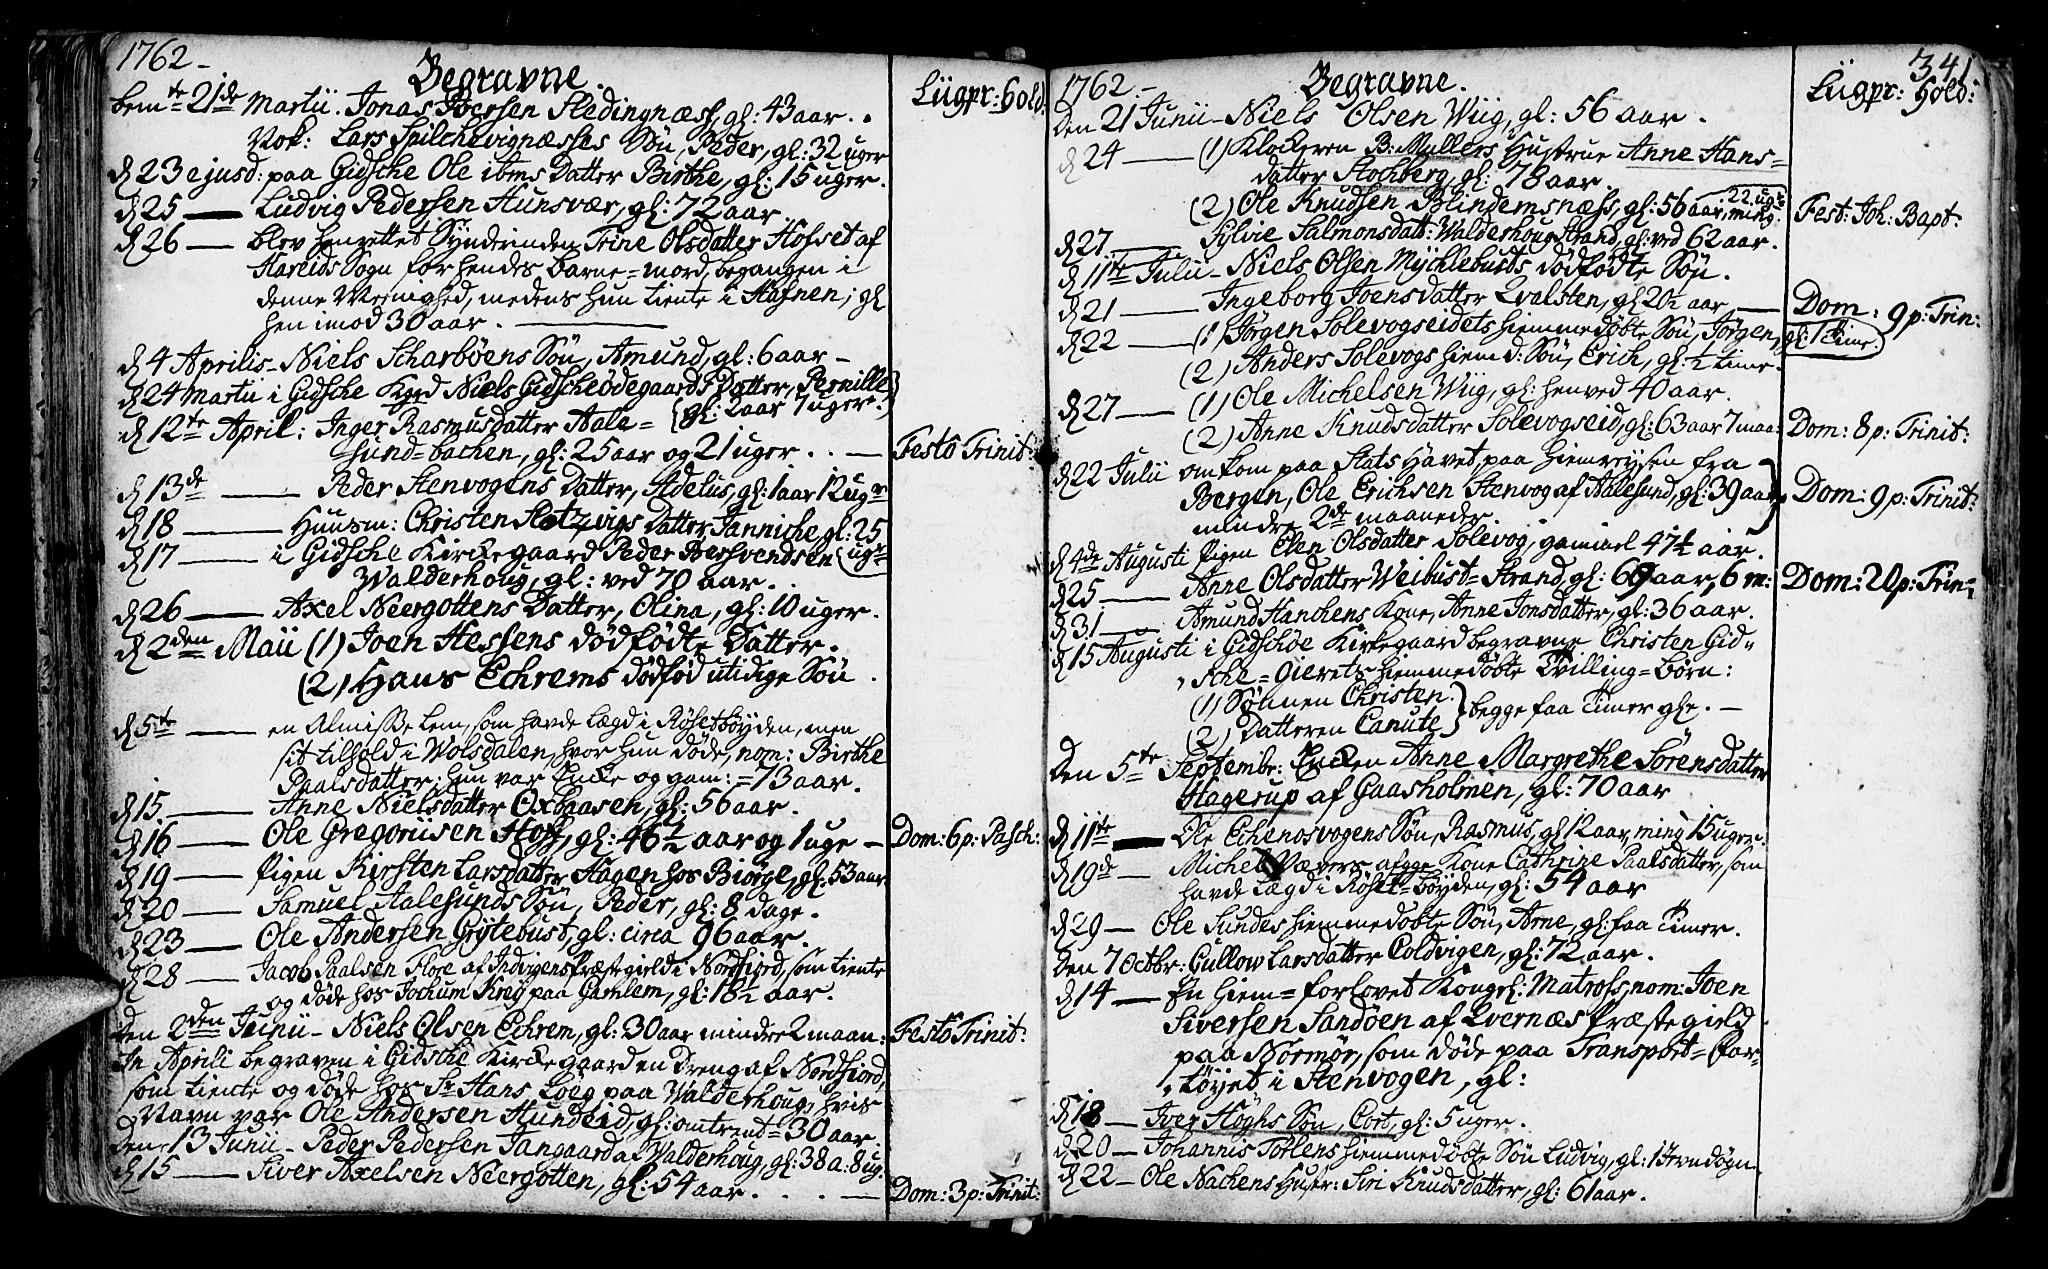 1762 -
Begravne.
Liigpr: hold:
bem.te 21de Martii. Jonas Iversen Sledingnæss, gl: 43 aar. .
Vok: Lars Spilchevignæsses Søn, Peder, gl: 32 uger
d 23 ejusd: paa Gidsche Ole ibms Datter Birthe, gl: 15 uger.
d 25 — Ludvig Pedersen Hunsvær, gl: 72 aar
d 26 — blev henrettet Synderinden Trine Olsdatter Hofset af
Hareids Sogn for hendes barne=mord, begangen i
denne Meenighed, medens hun tiente i Hafnen; gl
hen imod 30 aar. —
d 4 Aprilis - Niels Scharbøens Søn, Amund, gl: 6 aar -
d 24 Martii i Gidsche Kgrd Niels Gidscheødegaards Datter, Pernille
gl: 2 aar 7 uger.
d 12te April: Inger Rasmusdatter Aale=
sund=bachen, gl: 25 aar og 21 uger . . —
Festo Trinit:
d 13de — Peder Stenvogens Datter, Adelus, gl: 1 aar 12 ugr
d 18 — Huusm: Christen Slotzvigs Datter Janniche, gl: 25
ugr
d 17 — i Gidsche Kirckegaard Peder Bersvendsen
Walderhoug, gl: ved 70 aar. .
d 26 — Axel Neergottens Datter, Olina, gl: 10 uger.
d 2den Maii (1) Joen Hessens dødfødte Datter.
(2) Hans Echrems dødfød utidige Søn .
d 5te — en Almisse Lem, som havde Lægd i Røsetbøyden, men
sit tilhold i Wolsdalen, hvor hun døde, nom: Birthe
Paalsdatter; hun var Encke og gam: = 73 aar.
d 15. — Anne Nielsdatter Oxbaasen, gl: 56 aar.
d 16 — Ole Gregoriisen Hoff, gl: 46½ aar og 1 uge -
Dom: 6 p: Pasch:
d 19 — Pigen Kirsten Larsdatter Hagen hos Biørge, gl: 53 aar.
d 20 — Samuel Aalesunds Søn, Peder, gl: 8 dage.
d 23 — Ole Andersen Grytebust, gl: circa 96 aar.
d 28 — Jacob Paalsen Flore af Indvigens Præstegield i Nordfiord, som tiente
og døde hos Jochum Krey paa Gamlem, gl: 18½ aar.
Den 2den Junii - Niels Olsen Echrem, gl: 30 aar mindre 2 maan:
Festo Trinit:
In Aprili begraven i Gidsche Kirckegaard en Dreng af Nordfiord,
som tiente og døde hos Sr Hans Loeg paa Walderhoug, hvis
Navn var Ole Andersen Hundeid, gl: omtrent = 30 aar.
Den 13 Junii - Peder Pedersen Tangaard a Walderhoug, gl: 38 a: 8 ug.
d 15 — Siver Axelsen Neergotten, gl: 54 aar . . . —
Dom: 3 p: Trinit:
1762 -
Begravne.
341
Liigpr: hold:
Den 21 Junii - Niels Olsen Wiig, gl: 56 aar .
d 24 — (1) Klockeren B: Mullers Hustrue Anne Hans=
datter Stochberg, gl: 78 aar.
(2) Ole Knudsen Blindemsnæss, gl: 56 aar, ming
22 ugr
Fest: Joh: Bapt:
d 27 — Sylvie Salmonsdatt: Walderhoug Strand, gl: ved 62 aar.
d 11te Julii - Niels Olsen Mychlebusts dødfødte Søn.
d 21 — Ingeborg Joensdatter Qvalsten, gl 20½ aar —
Dom: 9 p: Trin:
d 22 — (1) Jørgen Solevogseidets hiemmedøbte Søn, Jørgen,
gl: 1 Time
(2) Anders Solevogs hiem d: Søn, Erich, gl: ½ time.
d 27 — (1) Ole Michelsen Wiig, gl: henved 40 aar.
(2) Anne Knudsdatter Solevogseid, gl: 63 aar 7 maa:
Dom: 8 p: Trinit:
d 22 Julii omkom paa Stats Havet, paa hiemreysen fra
Bergen, Ole Erichsen Stenvog af Aalesund, gl: 39 aar
mindre 2de maaneder.
Dom: 9 p: Trinit:
d 4de Augusti Pigen Elen Olsdatter Solevog, gammel 47½ aar.
d 25 — Anne Olsdatter Weibust=Strand, gl: 69 aar, 6 m:
Dom: 20 p: Trin:
d 31 — Amund Hanchens Kone, Anne Jonsdatter, gl: 36 aar.
d 15 Augusti i Gidschøe Kirkegaard begravne Christen Gid=
sche=Gierets hiemmedøbte Tvilling=børn:
(1) Sønnen Christen.
(2) Datteren Canute
begge faa Timer gle. —
Den 5te Septembr: Encken Anne Margrethe Sørensdatter
Hagerup af Gaasholmen, gl: 70 aar
d 11te — Ole Echenosvogens Søn, Rasmus, gl 12 aar, ming 15 uger.
d 19de — Michel Vævers afgge Kone Cathrine Paalsdatter, som
havde Lægd i Røset=bøyden, gl: 54 aar
d 29 — Ole Sundes hiemmedøbte Søn, Arne, gl: faa Timer.
Den 7 Octbr: Gullow Larsdatter Coldvigen, gl: 72 aar.
d 14 — En hiem=forlovet Kongel: Matross, nom: Joen
Siversen Sandøen af Qvernæs Præstegield
paa Nörmør, som døde paa Transport=far=
tøyet i Stenvogen, gl:
d 18 — Iver Høghs Søn, Cort, gl: 5 uger.
d 20 — Johannis Totlens hiemmedøbte Søn Ludvig, gl: 1 Jevndøgn
d 22 — Ole Nachens Hustr: Siri Knudsdatter, gl: 61 aar.